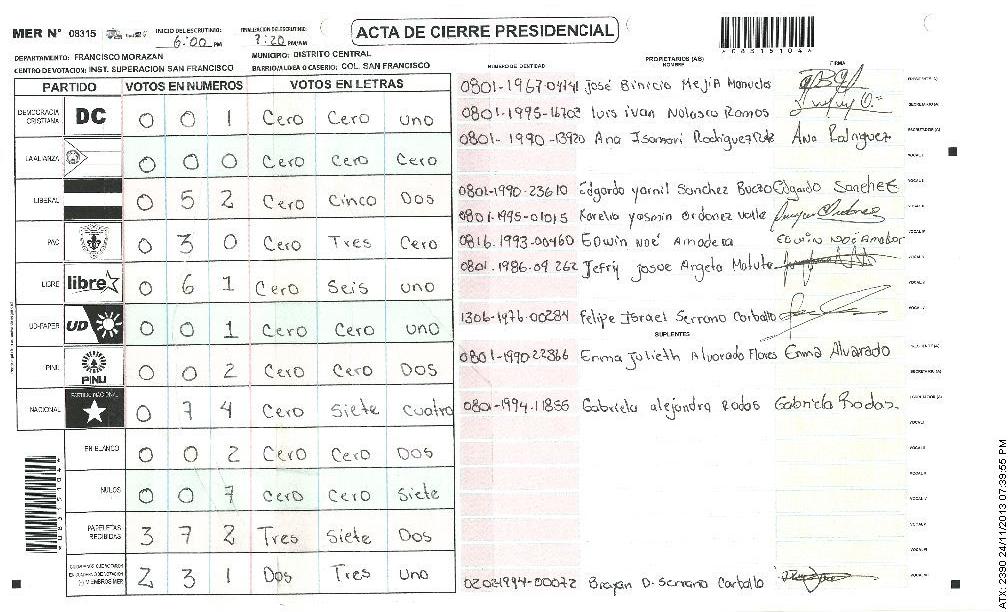 MER Nº 08315 INICIO DEL ESCRUTINIO: 6:00 PM FINALIZACION DEL ESCRUTINIO: 7:20 PM/AM
ACTA DE CIERRE PRESIDENCIAL
DEPARTAMENTO: FRANCISCO MORAZAN MUNICIPIO: DISTRITO CENTRAL
CENTRO DE VOTACION: INST. SUPERACION SAN FRANCISCO BARRIO/ALDEA O CASERIO: COL. SAN FRANCISCO
PARTIDO VOTOS EN NUMEROS VOTOS EN LETRAS
DEMOCRACIA CRISTIANA DC 0 0 1 Cero Cero uno
LA ALIANZA 0 0 0 Cero Cero Cero
LIBERAL 0 5 2 Cero Cinco Dos
PAC 0 3 0 Cero Tres Cero
LIBRE libre 0 6 1 Cero Seis uno
UD-FAPER UD 0 0 1 Cero Cero uno
PINU PINU 0 0 2 Cero Cero Dos
NACIONAL PARTIDO NACIONAL 0 7 4 Cero Siete Cuatro
EN BLANCO 0 0 2 Cero Cero Dos
NULOS 0 0 7 Cero Cero Siete
PAPELETAS RECIBIDAS 3 7 2 Tres Siete Dos
2 3 1 Dos Tres uno
NUMERO DE IDENTIDAD PROPIETARIOS (AS) NOMBRE FIRMA
José Binicio Mejia
0801-1995-16702 luis ivan Nolasco Ramos
0801-1990-13920 Ana Ana Rodriguez
0801-1990-23610 Edgardo yarnil Sanchez Edgardo Sanchez
0801-1995-01015 Karelia yasmin ordonez valle
0816-1993-00460 EDwin Noé Amador EDWIN NOÉ Amador
0801-1986-09262 Jefry josue Argeta Matute
1306-1976-00284 Felipe Israel Serrano Carballo
SUPLENTES
0801-1990-22866 Enma Julieth Alvarado Flores Enma Alvarado
0801-1994-11855 Gabriela alejandra Rodas Gabriela Rodas.
0202-1994-00072 Brayan D. Serrano Carballo
ATX: 2390 24/11/2013 07:39:55 PM